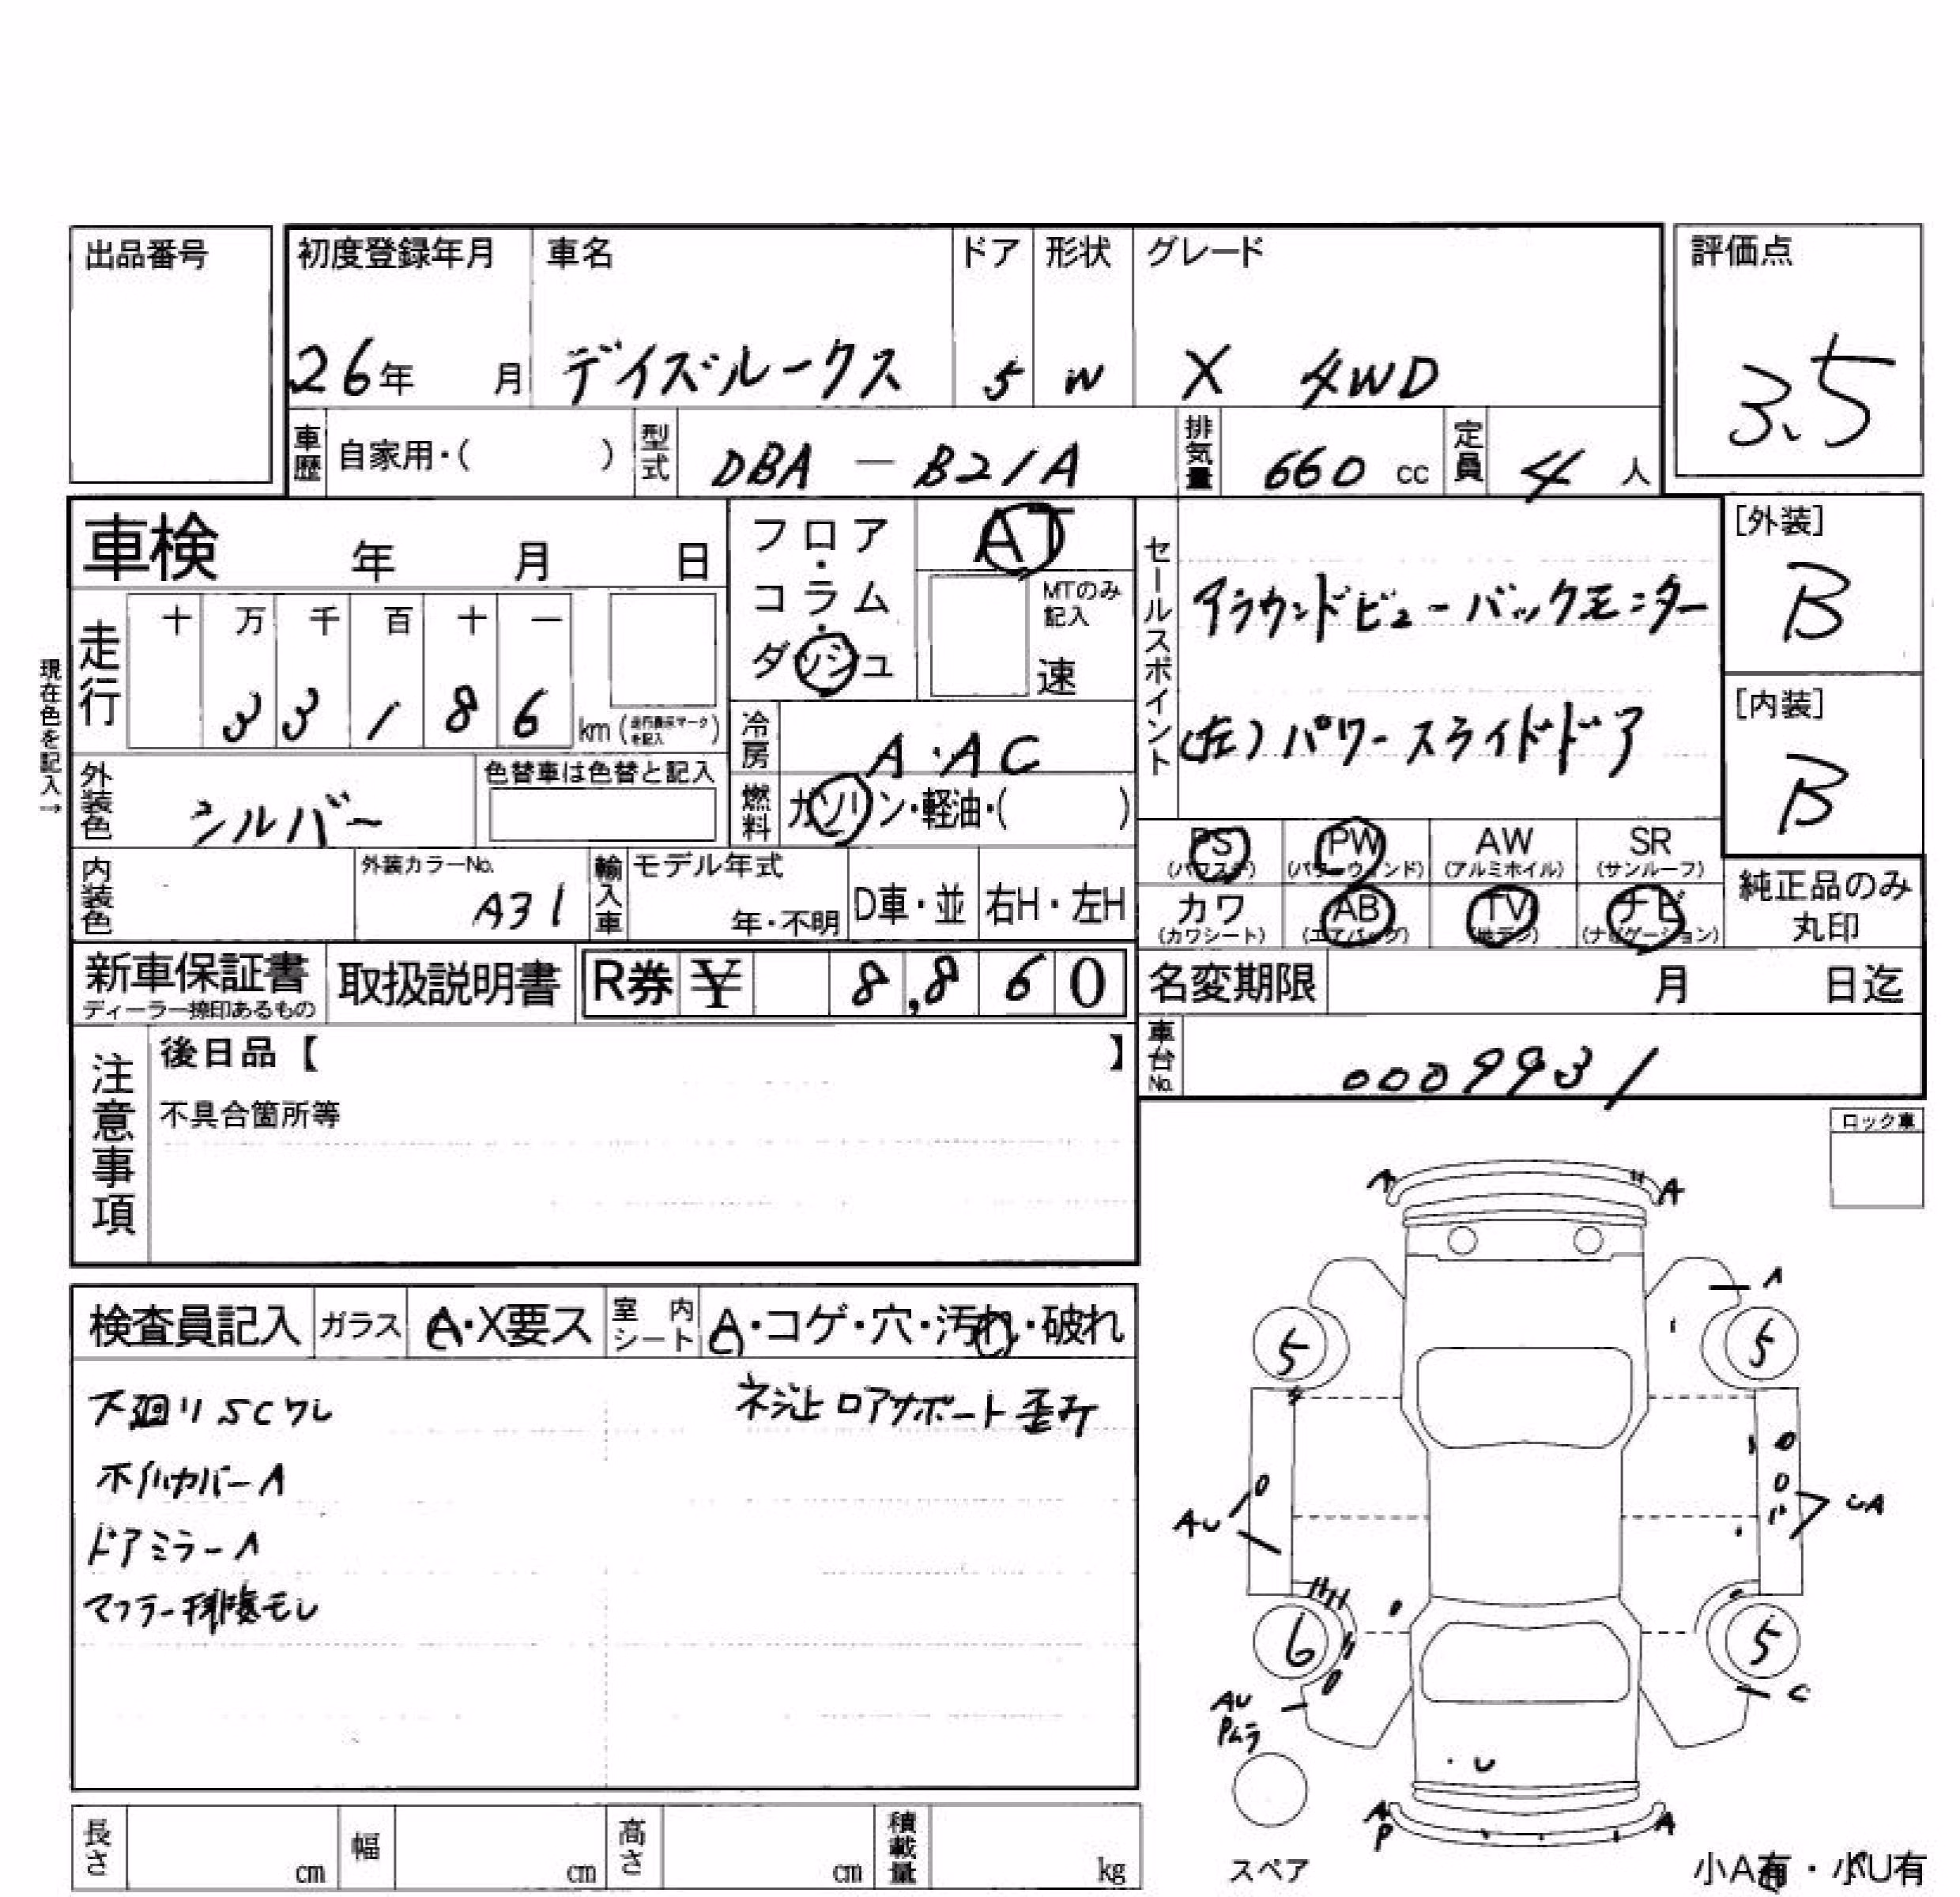 出品番号
初度登録年月 車名 ドア 形状 グレード 評価点
26年 月 デイズルークス 5 W X 4WD 3.5
車歴 自家用・( ) 型式 DBA － B21A 排気量 660 cc 定員 4 人
車検 年 月 日
フロア・コラム・ダッシュ AT
MTのみ記入 速
セールスポイント
アラウンドビューバックモニター
(左)パワースライドドア
[外装]
B
[内装]
B
現在色を記入→
走行 十 万 千 百 十 一
3 3 1 8 6 km (走行表示マークを記入)
冷房 A・AC
燃料 ガソリン・軽油・( )
外装色 シルバー 色替車は色替と記入
PS AW SR
(パワステ) (パワーウィンド) (アルミホイル) (サンルーフ)
PW
カワ AB TV ナビ
(カワシート) (エアバッグ) (地デジ) (ナビゲーション)
純正品のみ
丸印
内装色 外装カラーNo. A31 輸入車 モデル年式 年・不明 D車・並 右H・左H
新車保証書 取扱説明書 R券 ¥ 8,860 名変期限 月 日迄
ディーラー捺印あるもの
車台No. 0009931
注意事項
後日品【 】
不具合箇所等
ロック車
検査員記入 ガラス A・X要ス 室内シート A・コゲ・穴・汚れ・破れ
下廻りSCワレ
ネジ止 ロアサポート歪み
ホイルカバーA
ドアミラーA
マフラー排気モレ
A A
A
5 5
AU UA
6 5
AU
Pムラ
C
U
A
P
A
スペア
小A有・小U有
長さ cm 幅 cm 高さ cm 積載量 kg